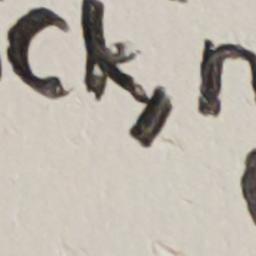 ck, n